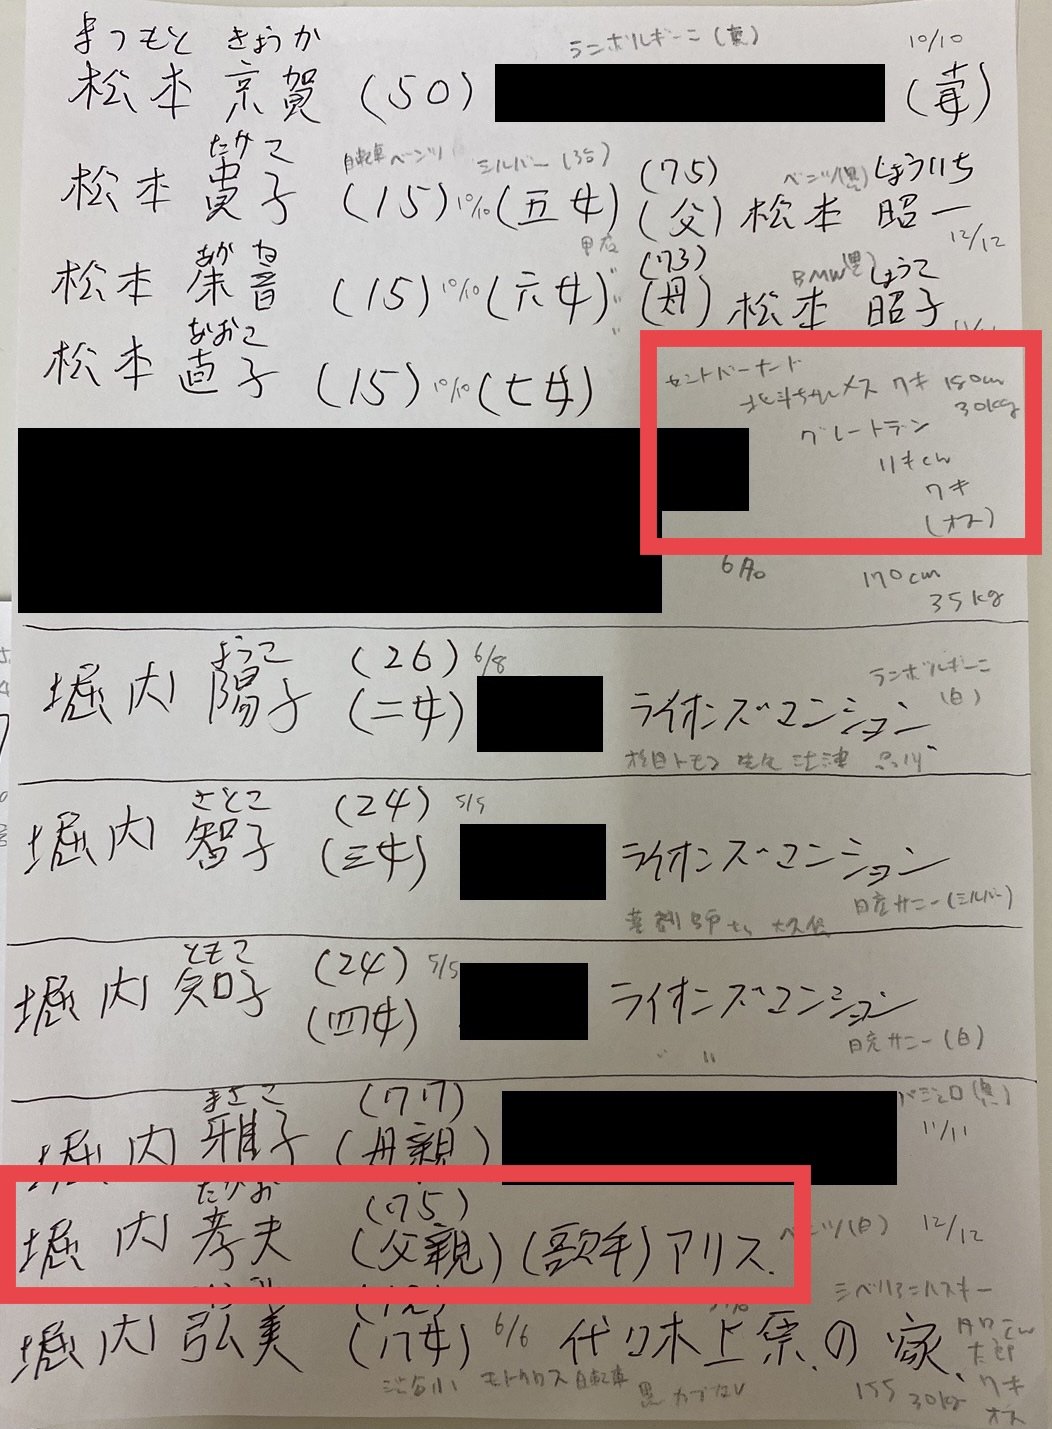 まつもと きょうか ランボルギーニ(黄) 10/10
松本 京賀 (50) (妻)
たかこ 自転車ベンツ シルバー(3台)
松本 貴子 (15) 10/10 (五女) (75) ベンツ(黒) しょういち
(父) 松本 昭一 12/12
あかね
松本 茱音 (15) 10/10 (六女) 〃 (73) BMW(黒) しょうこ
(母) 松本 昭子
なおこ 〃
松本 直子 (15) 10/10 (七女)
セントバーナード
北斗ちゃん メス ワキ 180cm
30kg
グレートデン
リキくん
ワキ
(オス)
6月。 170cm
35kg
ようこ (26) 6/8 ランボルギーニ
堀内 陽子 (二女) ライオンズマンション (白)
品川
さとこ (24) 5/5
堀内 智子 (三女) ライオンズマンション
日産サニー(シルバー)
ともこ (24) 5/5
堀内 知子 (四女) ライオンズマンション
〃 日産サニー(白)
まさこ (77) パジェロ(黒)
堀内 雅子 (母親) 11/11
たかお (75)
堀内 孝夫 (父親) (歌手) アリス. ベンツ(白) 12/12
シベリアンハスキー
堀内 弘美 (八女) 6/6 代々木上原の家
太郎
渋谷小 モトクロス自転車 黒 155 30kg ワキ
オス